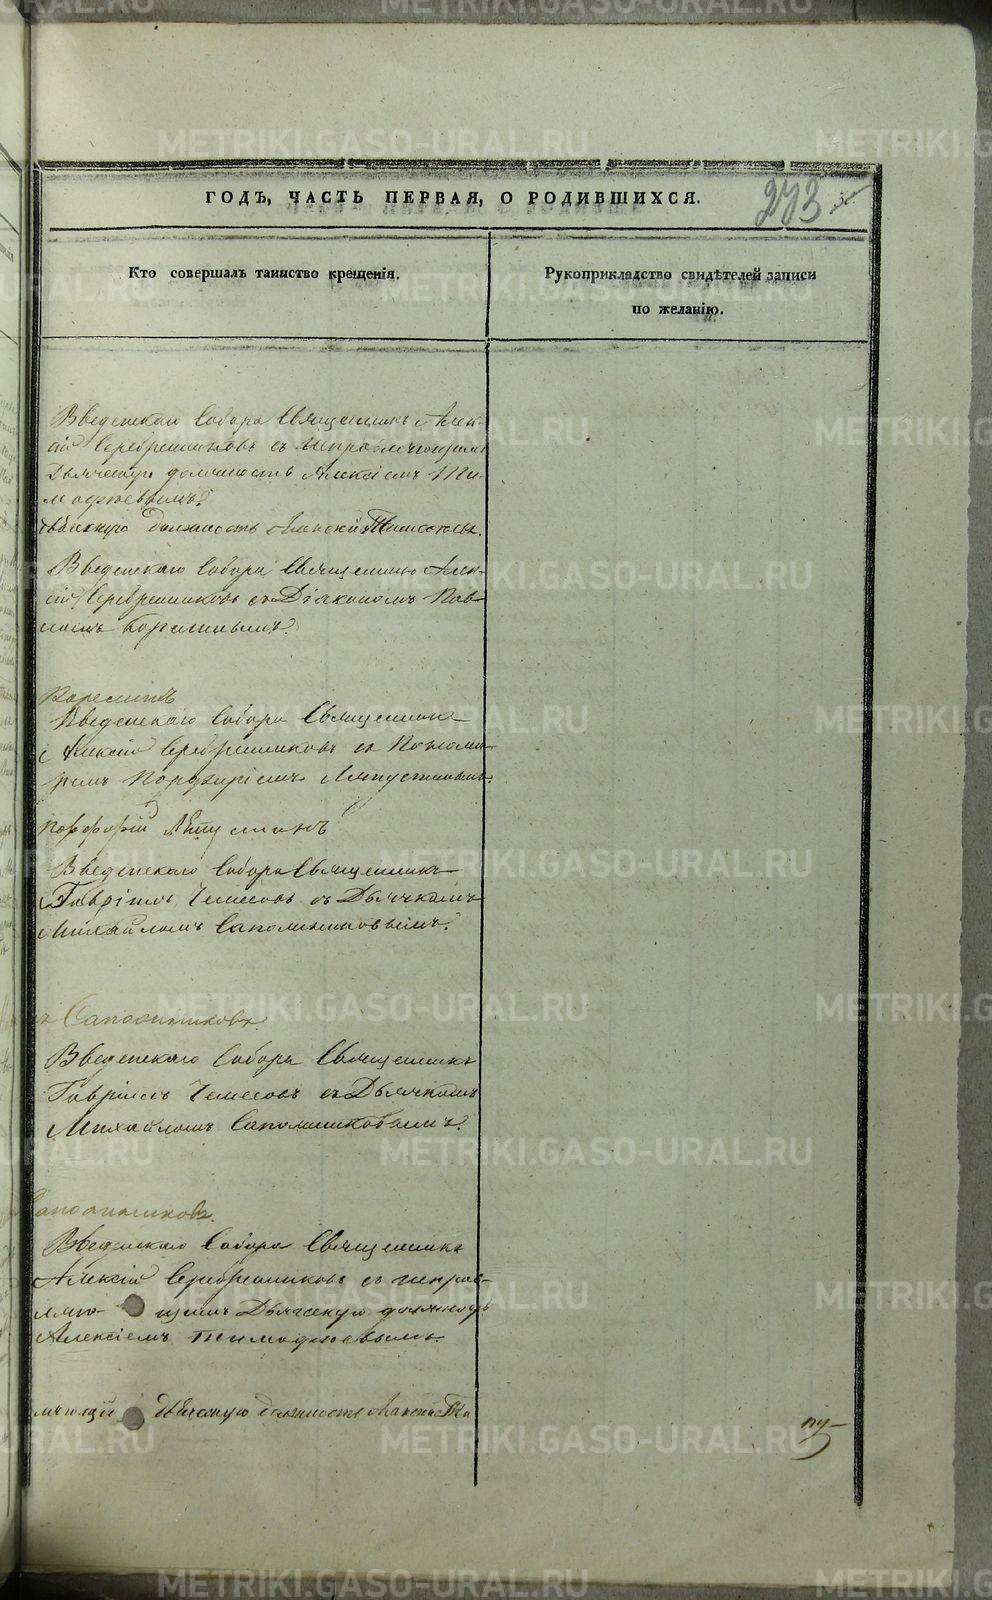 ГОДЪ, ЧАСТЬ ПЕРВАЯ, О РОДИВШИХСЯ.
273
Кто совершалъ таинство крещенія.
Рукоприкладство свидѣтелей записи
по желанію.
Введенскаго Собора Священникъ Алек-
сій Серебренниковъ съ исправляющимъ
Дьяческую должность Алексіемъ Ти-
мофѣевымъ.
должность Алексѣй
Введенскаго Собора Священникъ Алек-
сій Серебренниковъ съ Діакономъ Пав-
ломъ
Введенскаго Собора Священникъ
Алексій Серебренниковъ съ Понома-
ремъ Порфиріемъ Ляпустинымъ.
Порфирій Ляпустинъ
Введенскаго Собора Священникъ
Гавріилъ Чемесовъ съ Дьячкомъ
Михайломъ Сапожниковымъ.
Сапожниковъ
Введенскаго Собора Священникъ
Гавріилъ Чемесовъ съ Дьячкомъ
Михайломъ Сапожниковымъ.
Сапожниковъ.
Введенскаго Собора Священникъ
Алексій Серебренниковъ съ исправ-
ляю- щимъ Дьяческую должность
Алексіемъ Тимофѣевымъ.
ляющій дьяческую должность Алексѣй Ти
METRIKI.GASO-URAL.RU